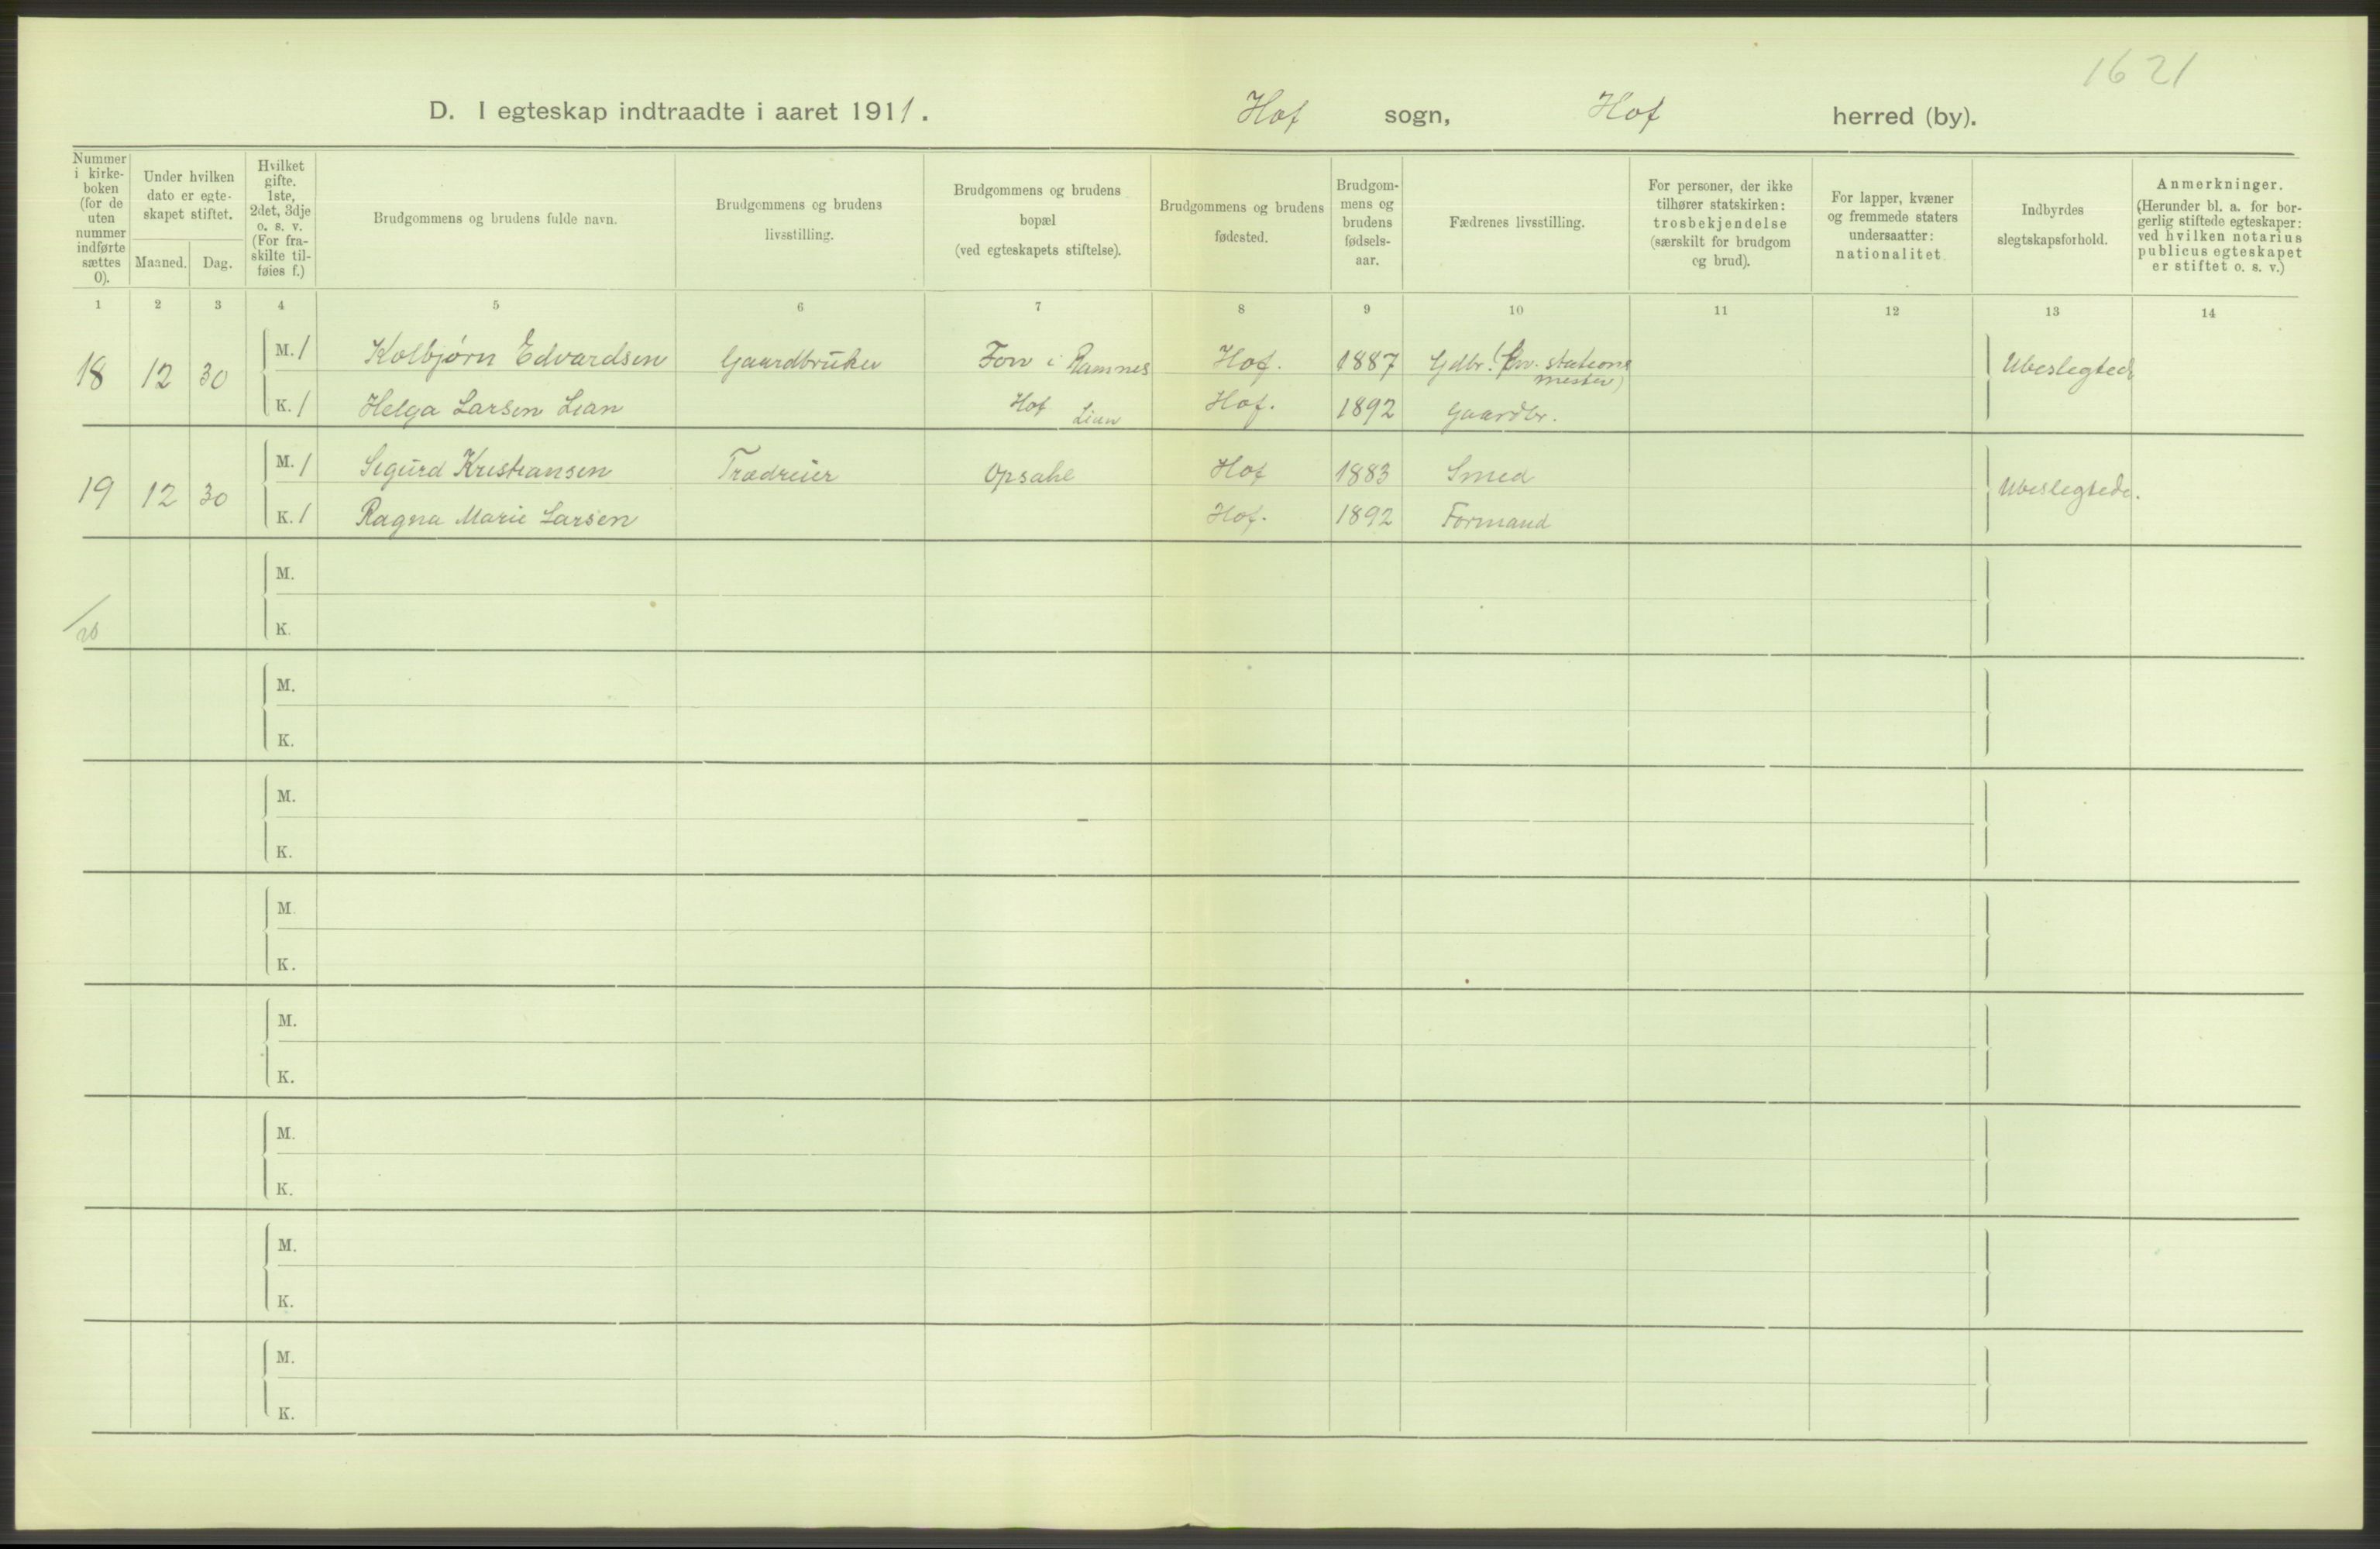 1621
D. I egteskap indtraadte i aaret 1911. Hof sogn, Hof herred (by).
Nummer i kirke-boken (for de uten nummer indførte sættes 0).
Under hvilken dato er egte-skapet stiftet.
Maaned. Dag.
Hvilket gifte. 1ste, 2det, 3dje o. s. v. (For fra-skilte til-føies f.)
Brudgommens og brudens fulde navn.
Brudgommens og brudens livsstilling.
Brudgommens og brudens bopæl (ved egteskapets stiftelse).
Brudgommens og brudens fødested.
Brudgom-mens og brudens fødsels-aar.
Fædrenes livsstilling.
For personer, der ikke tilhører statskirken: trosbekjendelse (særskilt for brudgom og brud).
For lapper, kvæner og fremmede staters undersaatter: nationalitet.
Indbyrdes slegtskapsforhold.
Anmerkninger. (Herunder bl. a. for bor-gerlig stiftede egteskaper: ved hvilken notarius publicus egteskapet er stiftet o. s. v.)
1 2 3 4 5 6 7 8 9 10 11 12 13 14
18 12 30 M. 1 Kolbjørn Edvardsen Gaardbruker Fon i Ramnes Hof. 1887 Gdbr. stations mester) Ubeslegtede
K. 1 Helga Larsen Lian Hof Lian Hof. 1892 Gaardbr.
19 12 30 M. 1 Sigurd Kristiansen Trædreier Opsahl Hof 1883 Smed Ubeslegtede.
K. 1 Ragna Marie Larsen Hof. 1892 Formand
M.
K.
M.
K.
M.
K.
M.
K.
M.
K.
M.
K.
M.
K.
M.
K.